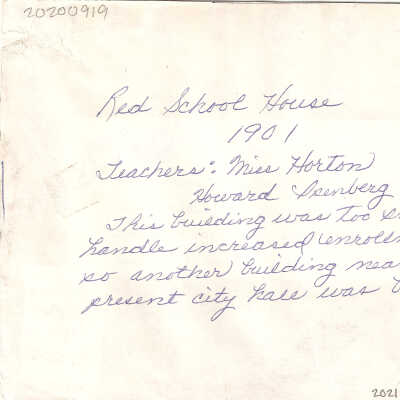 20200919
Red School House
1901
Teachers: Miss Horton
Howard Isenberg
This building was too
handle increased
so another building
present city hall was
2021